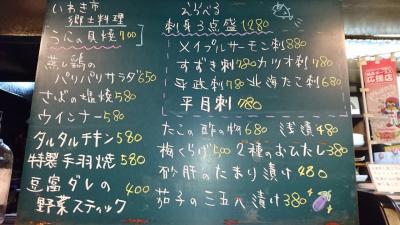 いわき市
郷土料理
うにの貝焼 700
蒸し鶏の
パリパリサラダ 650
さばの塩焼 580
ウインナー 580
タルタルチキン 580
特製手羽焼 580
豆富ダレの 400
野菜スティック
えらべる
刺身3点盛 1280
メイプルサーモン刺 880
すずき刺 780 カツオ刺 780
平政刺 780 北海たこ刺 680
平目刺 780
たこの酢の物 680 浅漬 480
梅くらげ 500 2種のおひたし 380
砂肝のたまり漬け 480
茄子の三五八漬け 380
応援店